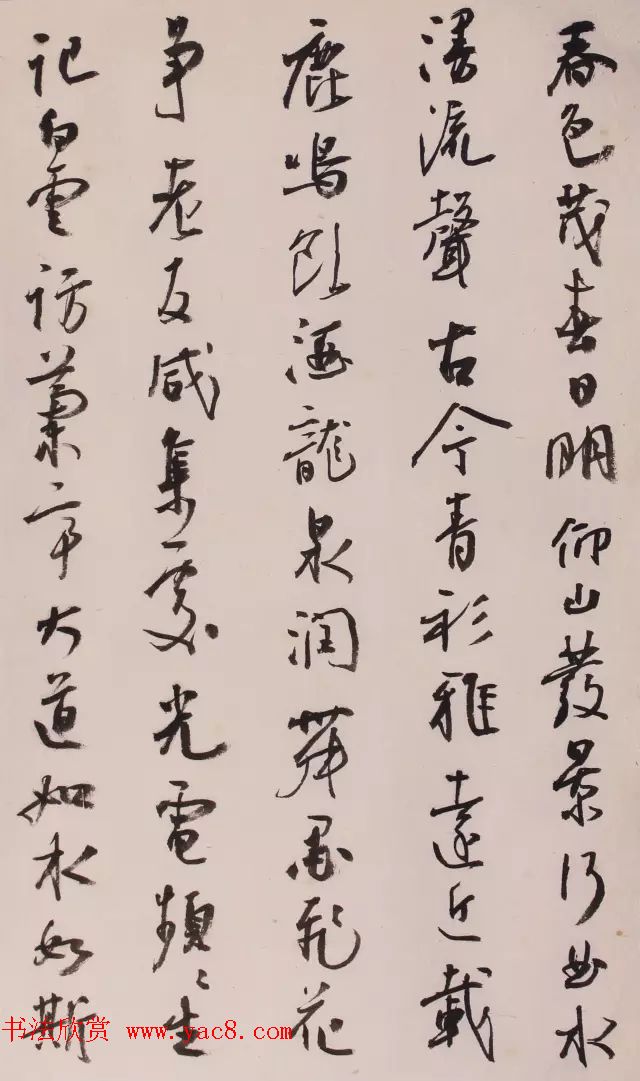 春色茂春日明仰山發景行曲水
漫流聲古今青彩雅遠近載
鹿鳴飲酒龍泉潤舞墨飛花
争老友咸集處光電頻々生
記白雲訪蘭亭大道如水如斯
书法欣赏 www.yac8.com